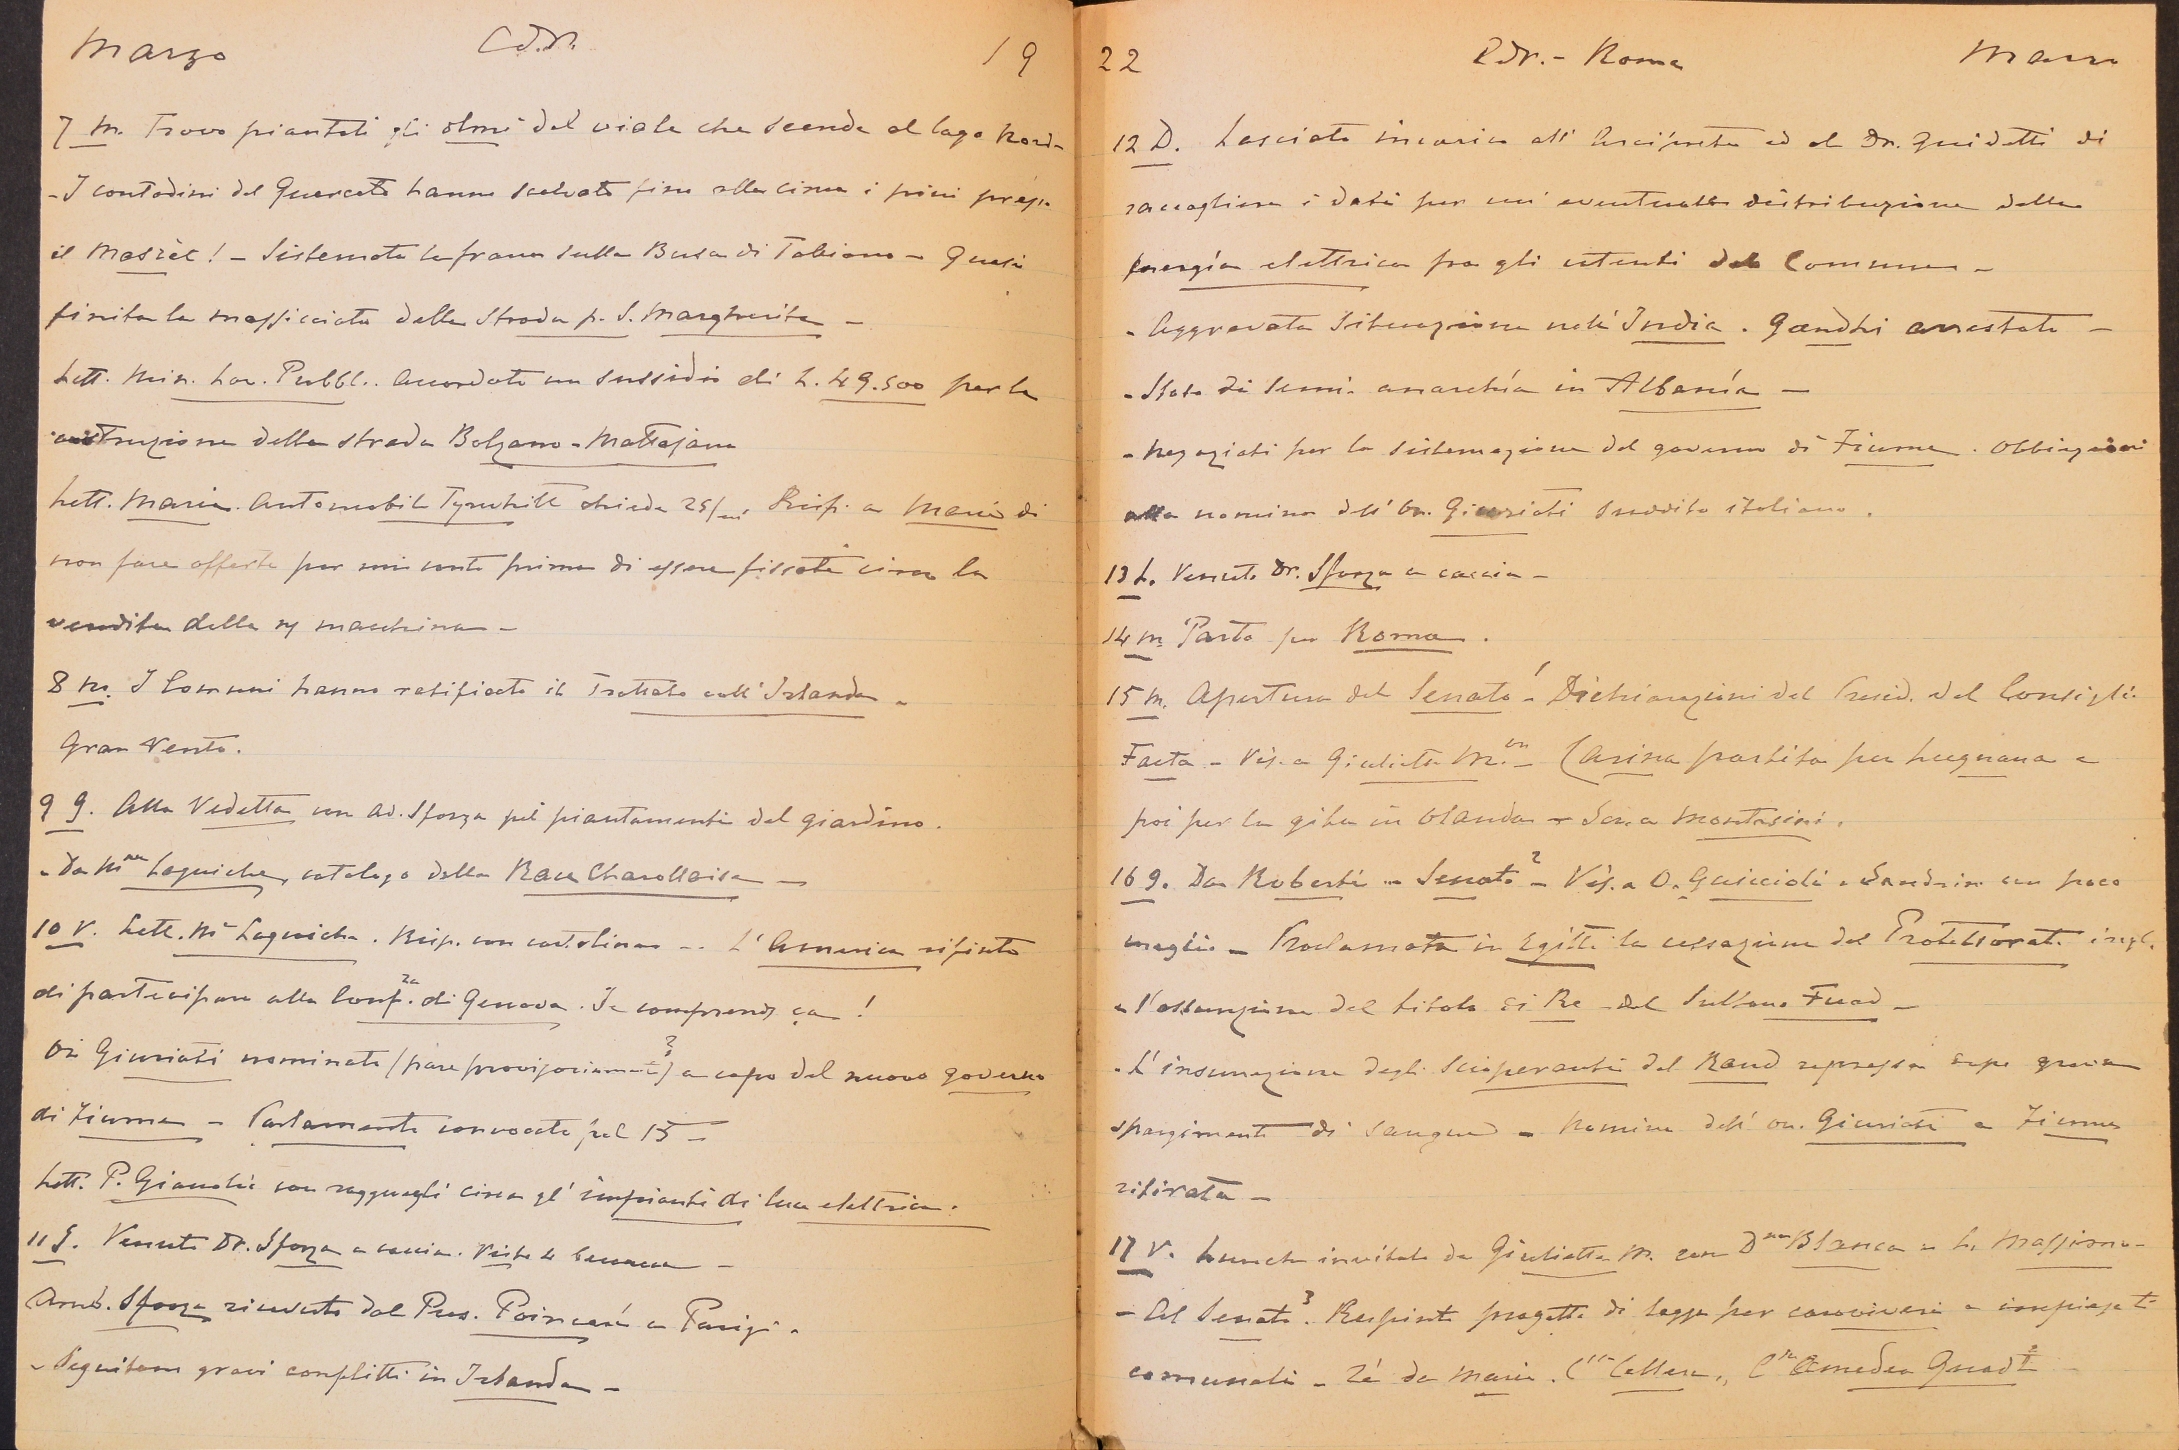 Marzo CdR. 19
7 M. Trovo piantati gli olmi del viale che scende al lago Nord-
- I contadini del Querceto hanno scalvato fino alla cima i pini presso
il Masrèt! - Sistemata la frana sulla Busa di Tabiano - Quasi
finita la massicciata della Strada p. S. Margherita -
Lett. Min. Lav. Pubbl.. Accordato un sussidio di L. 49.500 per la
costruzione della strada Bolzano - Mattajana
Lett. Maria. Automobile Tyrwhitt chiede 25/m Risp. a Maria di
non fare offerte per mio conto prima di essere fissata circa la
vendita della macchina -
8 M. I Comuni hanno ratificato il Trattato coll'Irlanda -
Gran Vento.
9 G. Alla Vedetta con Ad. Sforza pei piantamenti del giardino.
- Da Mme Laguiche, catalogo della Race Charollaise -
10 V. Lett. Me Laguiche. Risp. con cartolina -. L'America rifiuta
di partecipare alla Confza di Genova. Je comprends ça!
On Giuriati nominato (pare provvisoriamente?) a capo del nuovo governo
di Fiume - Parlamento convocato pel 15 -
Lett. P. Gianolio con ragguagli circa gl'impianti di luce elettrica.
11 S. Venuto Dr. Sforza a caccia. Viste 4 -
Amb. Sforza ricevuto dal Pres. Poincaré a Parigi -
- Seguitano gravi conflitti in Irlanda -
22 RdR. - Roma Marzo
12 D. Lasciato incarico all'Arciprete ed al Dr. Guidetti di
raccogliere i dati per un'eventuale distribuzione della
energia elettrica fra gli utenti del Comune -
- Aggravata situazione nell'India. Gandhi arrestato -
- Stato di semi-anarchia in Albania -
- Negoziati per la sistemazione del governo di Fiume. Obbiezioni
alla nomina dell'On. Giuriati suddito italiano.
13 L. Venuto Dr. Sforza a caccia -
14 M Parto per Roma.
15 M. Apertura del Senato 1 - Dichiarazioni del Presid. del Consiglio
Facta - Vis. a Giulietta M.on - Carina partita per Lugnana e
poi per la gita in Olanda - Sera Montesini.
16 G. Da Roberti - Senato 2 - Vis. a O. Guiccioli - Sandrino un poco
meglio - Proclamata in Egitto la cessazione del Protettorato ingl.
e l'assunzione del titolo di Re del Sultano Fuad -
- L'insurrezione degli Scioperanti del Rand repressa dopo grave
spargimento di sangue - Nomina dell'on. Giuriati a Fiume
ritirata -
17 V. Lunch invitato da Giulietta M. con Dna Blanca e L. Massimo -
- Al Senato 3. Respinto progetto di legge per caroviveri a impiegati
comunali - Té da Maria. Css Cellere, Css Amedea Quadt